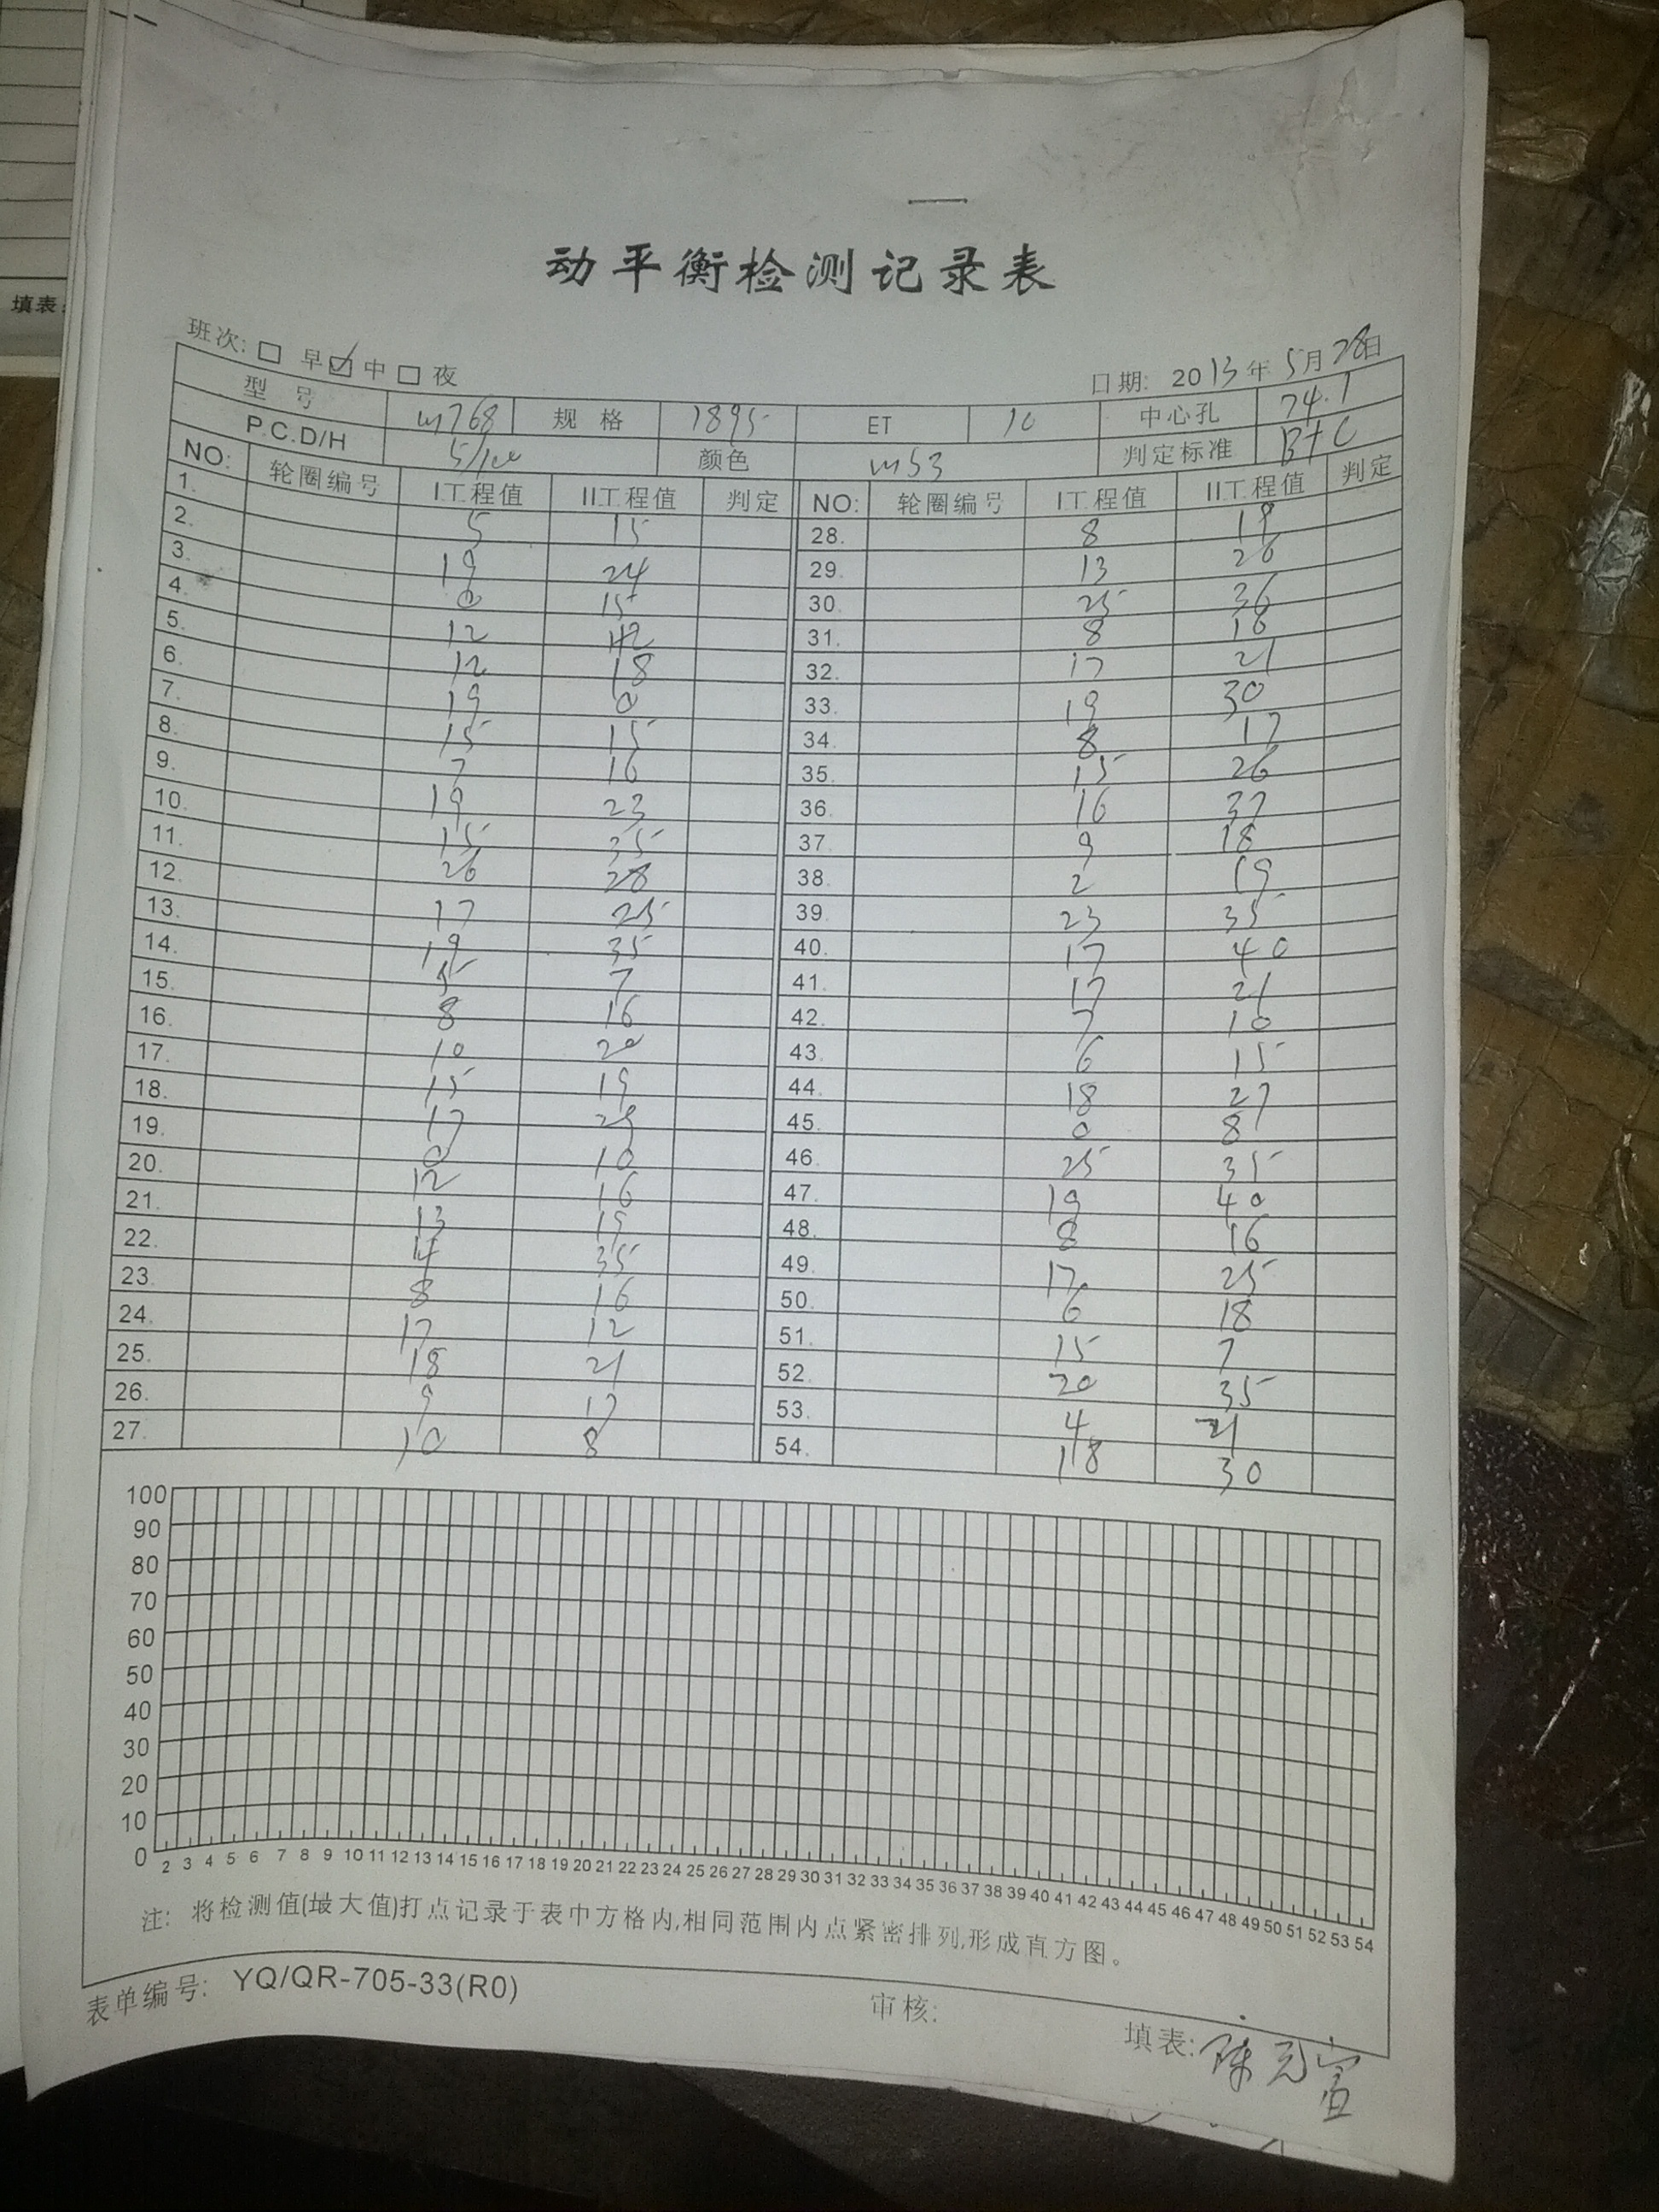 填表:
动平衡检测记录表
班次: □ 早 ☑ 中 □ 夜 日期: 2013年 5月 28日
型 号 m768 规 格 1895 ET 10 中心孔 74.1
P.C.D/H 5/100 颜色 m53 判定标准 B+C
NO: 轮圈编号 I工程值 II工程值 判定 NO: 轮圈编号 I工程值 II工程值 判定
1. 5 15 28. 8 18
2. 19 24 29. 13 26
3. 0 15 30. 25 36
4. 12 12 31. 8 16
5. 12 18 32. 17 21
6. 19 0 33. 19 30
7. 15 15 34. 8 17
8. 7 16 35. 15 26
9. 19 23 36. 16 37
10. 15 35 37. 9 18
11. 26 28 38. 2 19
12. 17 25 39. 23 35
13. 19 35 40. 17 40
14. 5 7 41. 17 21
15. 8 16 42. 7 10
16. 10 20 43. 6 15
17. 15 19 44. 18 27
18. 17 29 45. 0 8
19. 0 10 46. 25 35
20. 12 16 47. 19 40
21. 13 19 48. 8 16
22. 14 35 49. 17 25
23. 8 16 50. 6 18
24. 17 12 51. 15 7
25. 18 21 52. 20 35
26. 9 17 53. 4 21
27. 10 8 54. 18 30
100
90
80
70
60
50
40
30
20
10
0
2 3 4 5 6 7 8 9 10 11 12 13 14 15 16 17 18 19 20 21 22 23 24 25 26 27 28 29 30 31 32 33 34 35 36 37 38 39 40 41 42 43 44 45 46 47 48 49 50 51 52 53 54
注: 将检测值(最大值)打点记录于表中方格内,相同范围内点紧密排列,形成直方图。
表单编号: YQ/QR-705-33(R0) 审核: 填表: 陈元宣